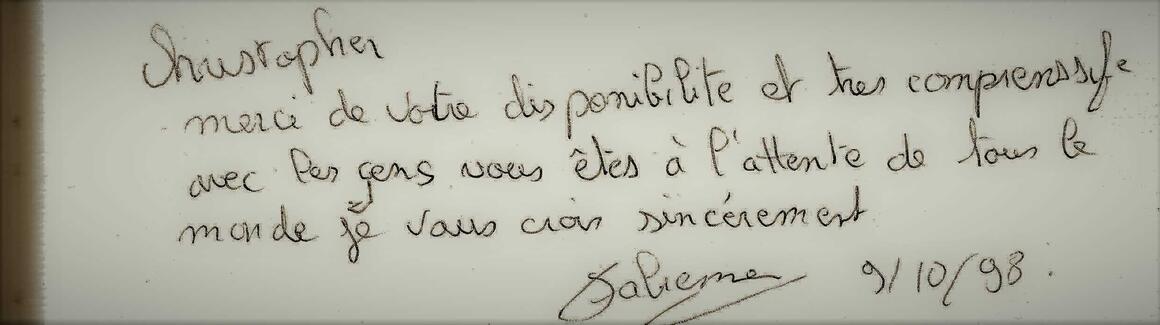 Christopher
merci de votre disponibilite et tres comprenssife
avec les gens vous êtes à l'attente de tous le
monde je vous crois sincérement
9/10/98.